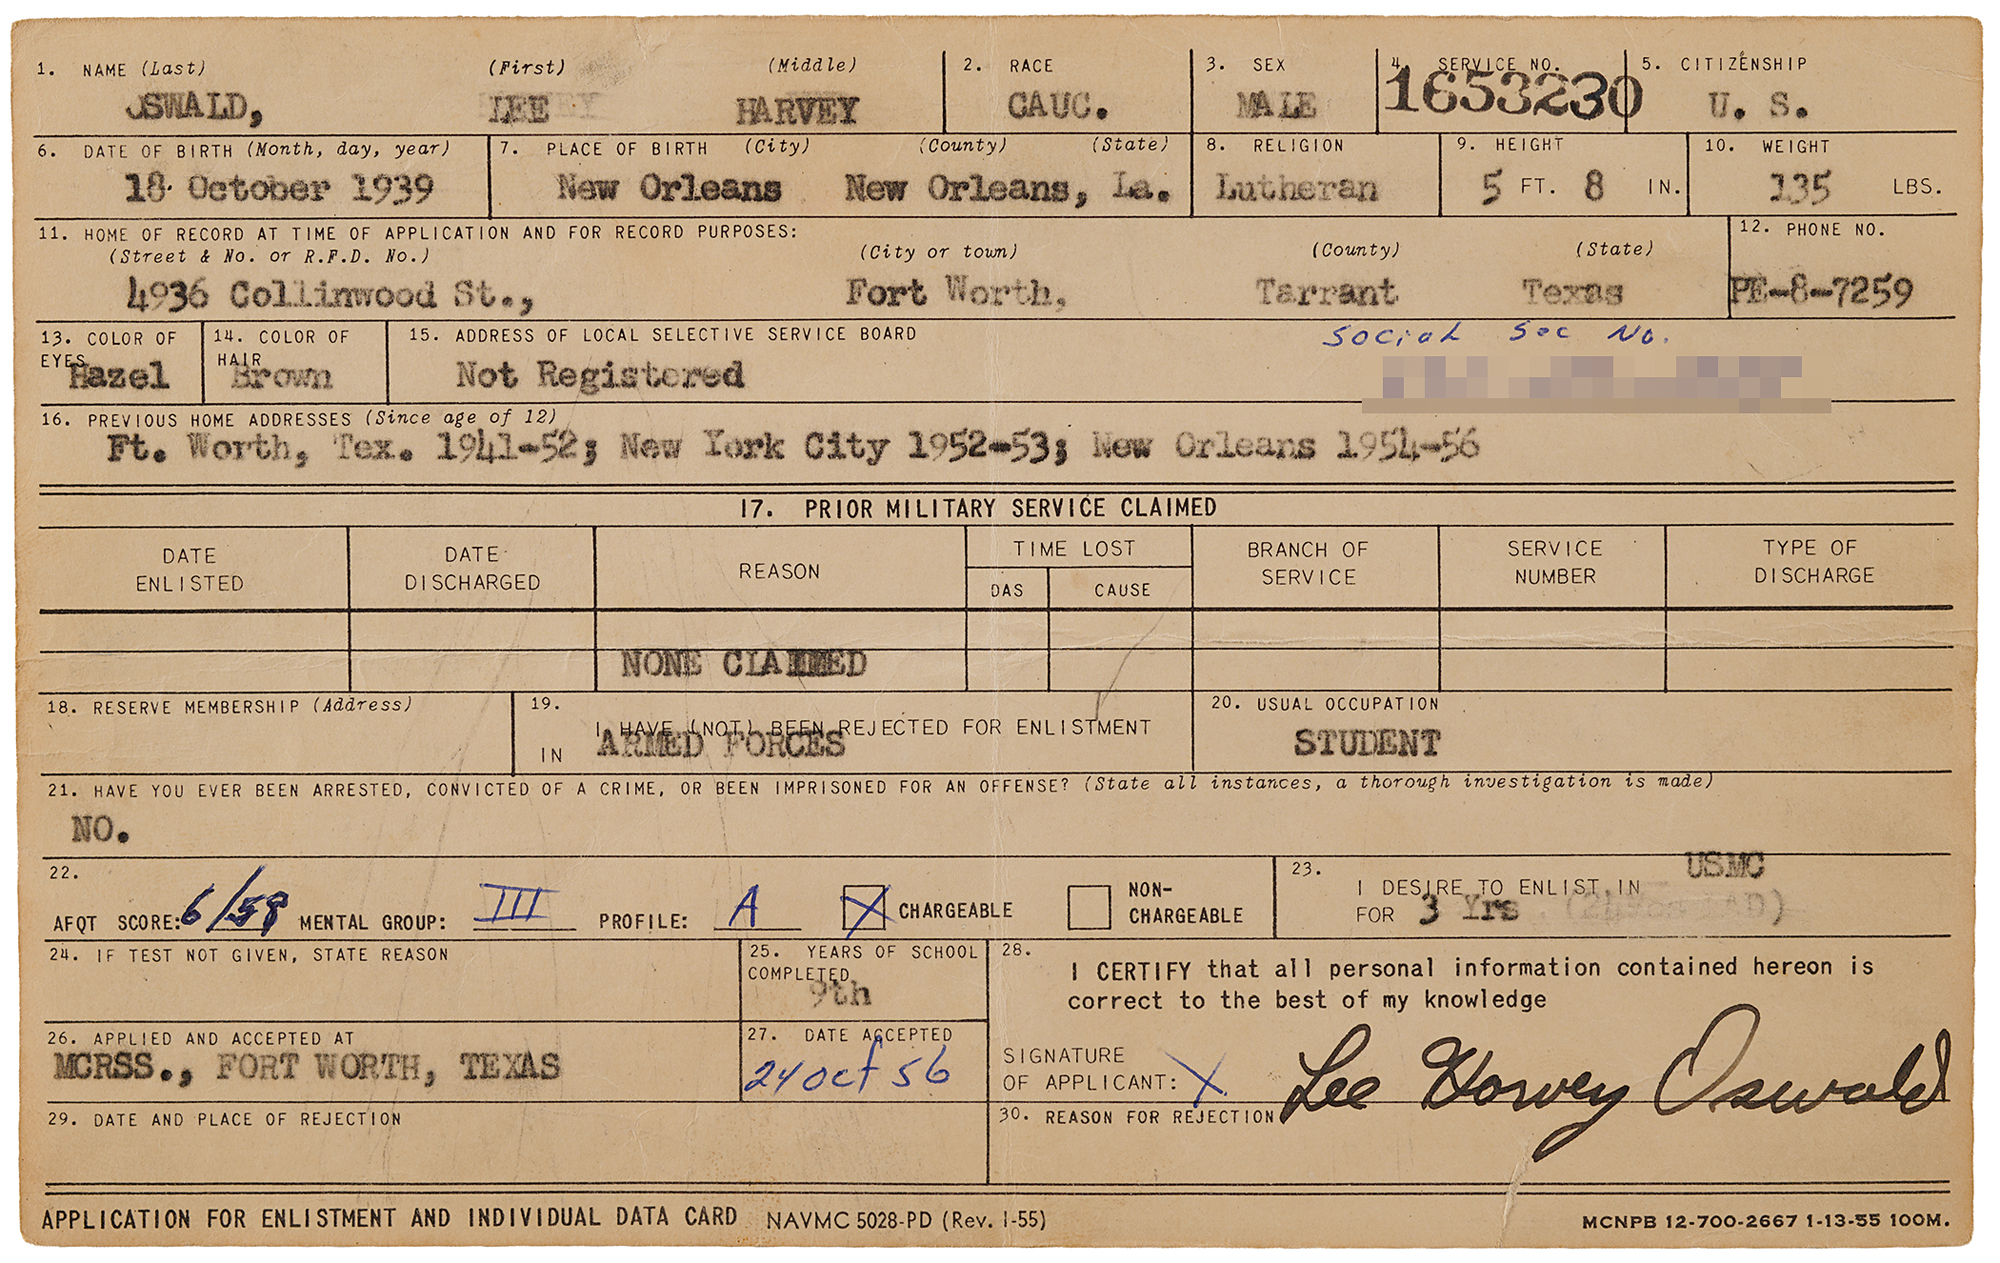 1. NAME (Last) (First) (Middle) 2. RACE 3. SEX 4. SERVICE NO. 5. CITIZENSHIP
OSWALD, LEE HARVEY CAUC. MALE 1653230 U. S.
6. DATE OF BIRTH (Month, day, year) 7. PLACE OF BIRTH (City) (County) (State) 8. RELIGION 9. HEIGHT 10. WEIGHT
18 October 1939 New Orleans New Orleans, La. Lutheran 5 FT. 8 IN. 135 LBS.
11. HOME OF RECORD AT TIME OF APPLICATION AND FOR RECORD PURPOSES: 12. PHONE NO.
(Street & No. or R.F.D. No.) (City or town) (County) (State)
4936 Collinwood St., Fort Worth, Tarrant Texas PE-8-7259
13. COLOR OF EYES 14. COLOR OF HAIR 15. ADDRESS OF LOCAL SELECTIVE SERVICE BOARD Social Sec No.
Hazel Brown Not Registered
16. PREVIOUS HOME ADDRESSES (Since age of 12)
Ft. Worth, Tex. 1941-52; New York City 1952-53; New Orleans 1954-56
17. PRIOR MILITARY SERVICE CLAIMED
DATE ENLISTED DATE DISCHARGED REASON TIME LOST BRANCH OF SERVICE SERVICE NUMBER TYPE OF DISCHARGE
DAS CAUSE
NONE CLAIMED
18. RESERVE MEMBERSHIP (Address) 19. I HAVE (NOT) BEEN REJECTED FOR ENLISTMENT 20. USUAL OCCUPATION
IN ARMED FORCES STUDENT
21. HAVE YOU EVER BEEN ARRESTED, CONVICTED OF A CRIME, OR BEEN IMPRISONED FOR AN OFFENSE? (State all instances, a thorough investigation is made)
NO.
22. AFQT SCORE: 6/58 MENTAL GROUP: III PROFILE: A X CHARGEABLE NON-CHARGEABLE
23. I DESIRE TO ENLIST IN USMC
FOR 3 Yrs
24. IF TEST NOT GIVEN, STATE REASON 25. YEARS OF SCHOOL COMPLETED
9th
28. I CERTIFY that all personal information contained hereon is
correct to the best of my knowledge
26. APPLIED AND ACCEPTED AT 27. DATE ACCEPTED
MCRSS., FORT WORTH, TEXAS 24 Oct 56
SIGNATURE
OF APPLICANT: X Lee Harvey Oswald
29. DATE AND PLACE OF REJECTION 30. REASON FOR REJECTION
APPLICATION FOR ENLISTMENT AND INDIVIDUAL DATA CARD NAVMC 5028-PD (Rev. 1-55) MCNPB 12-700-2667 1-13-55 100M.